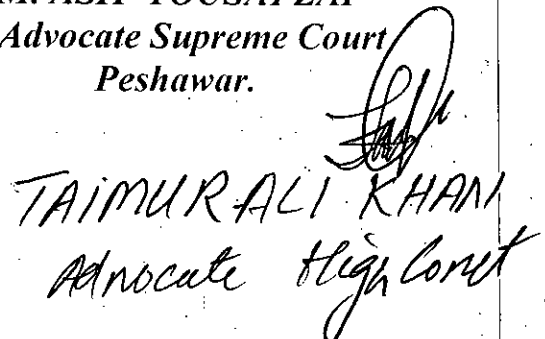 M. ASIF YOUSAFZAI
Advocate Supreme Court
Peshawar.
TAIMUR ALI KHAN
Advocate High Court